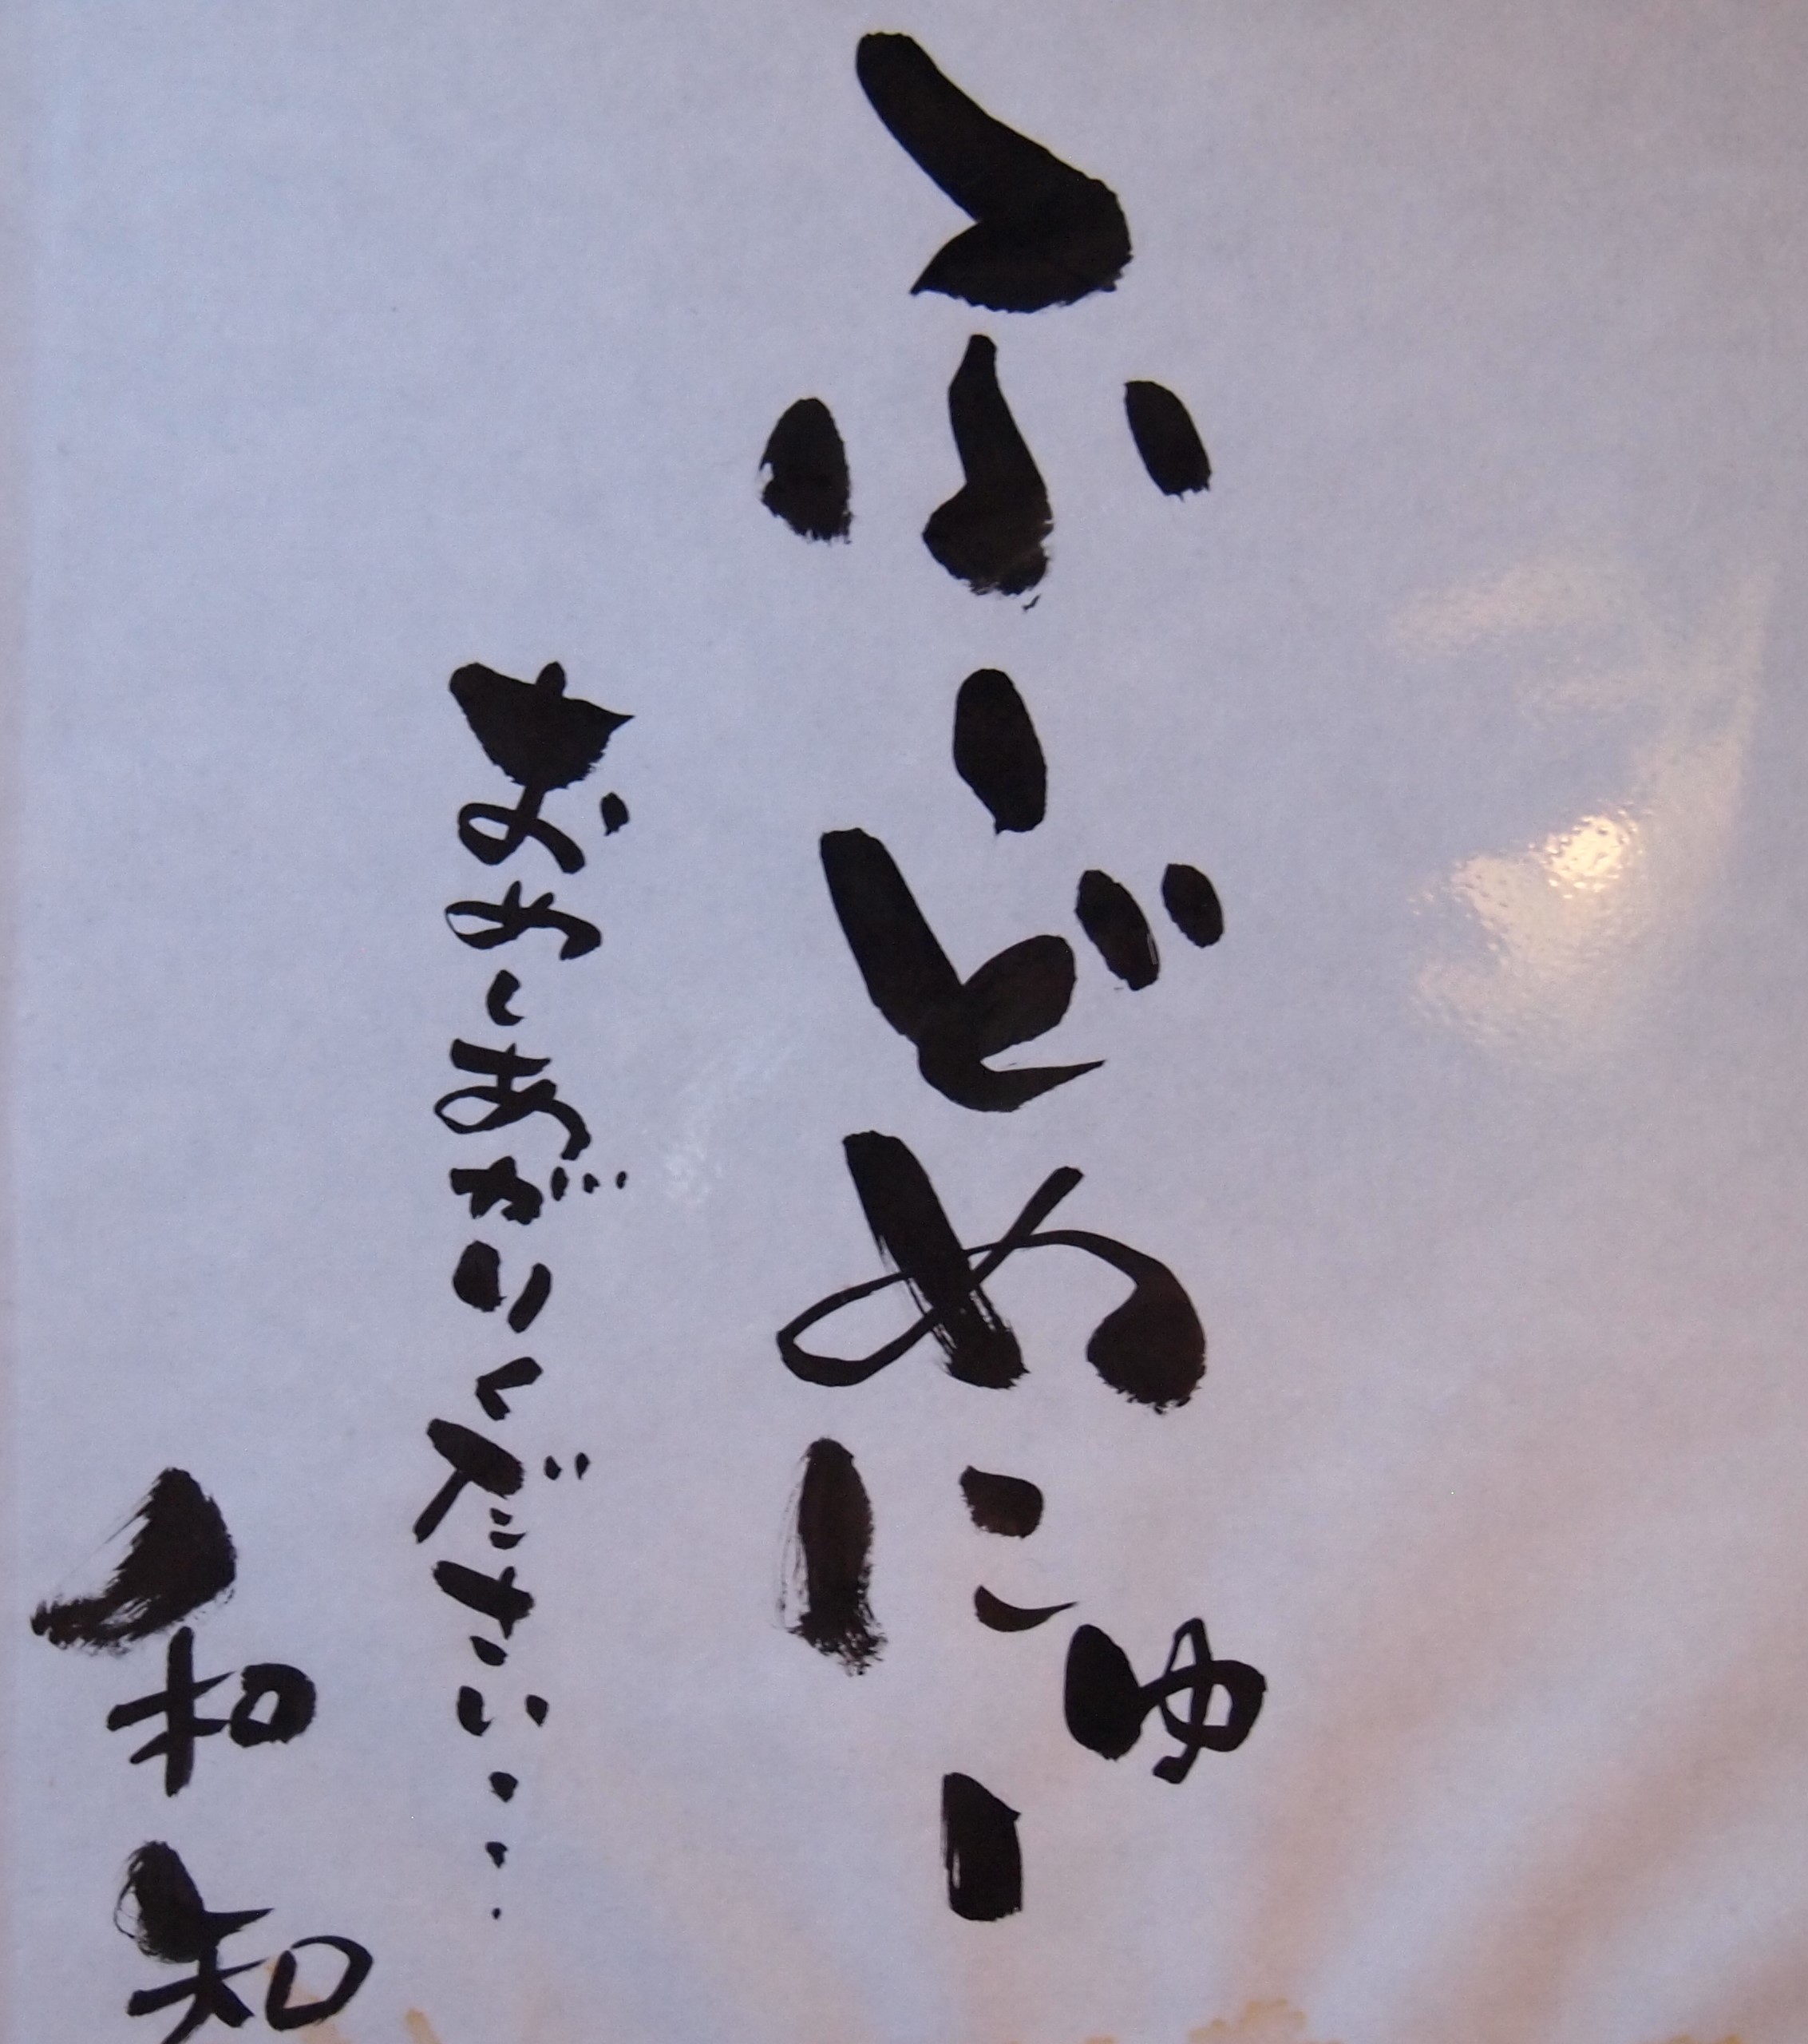 ふーどめにゅー
おめしあがりください・・・
和知